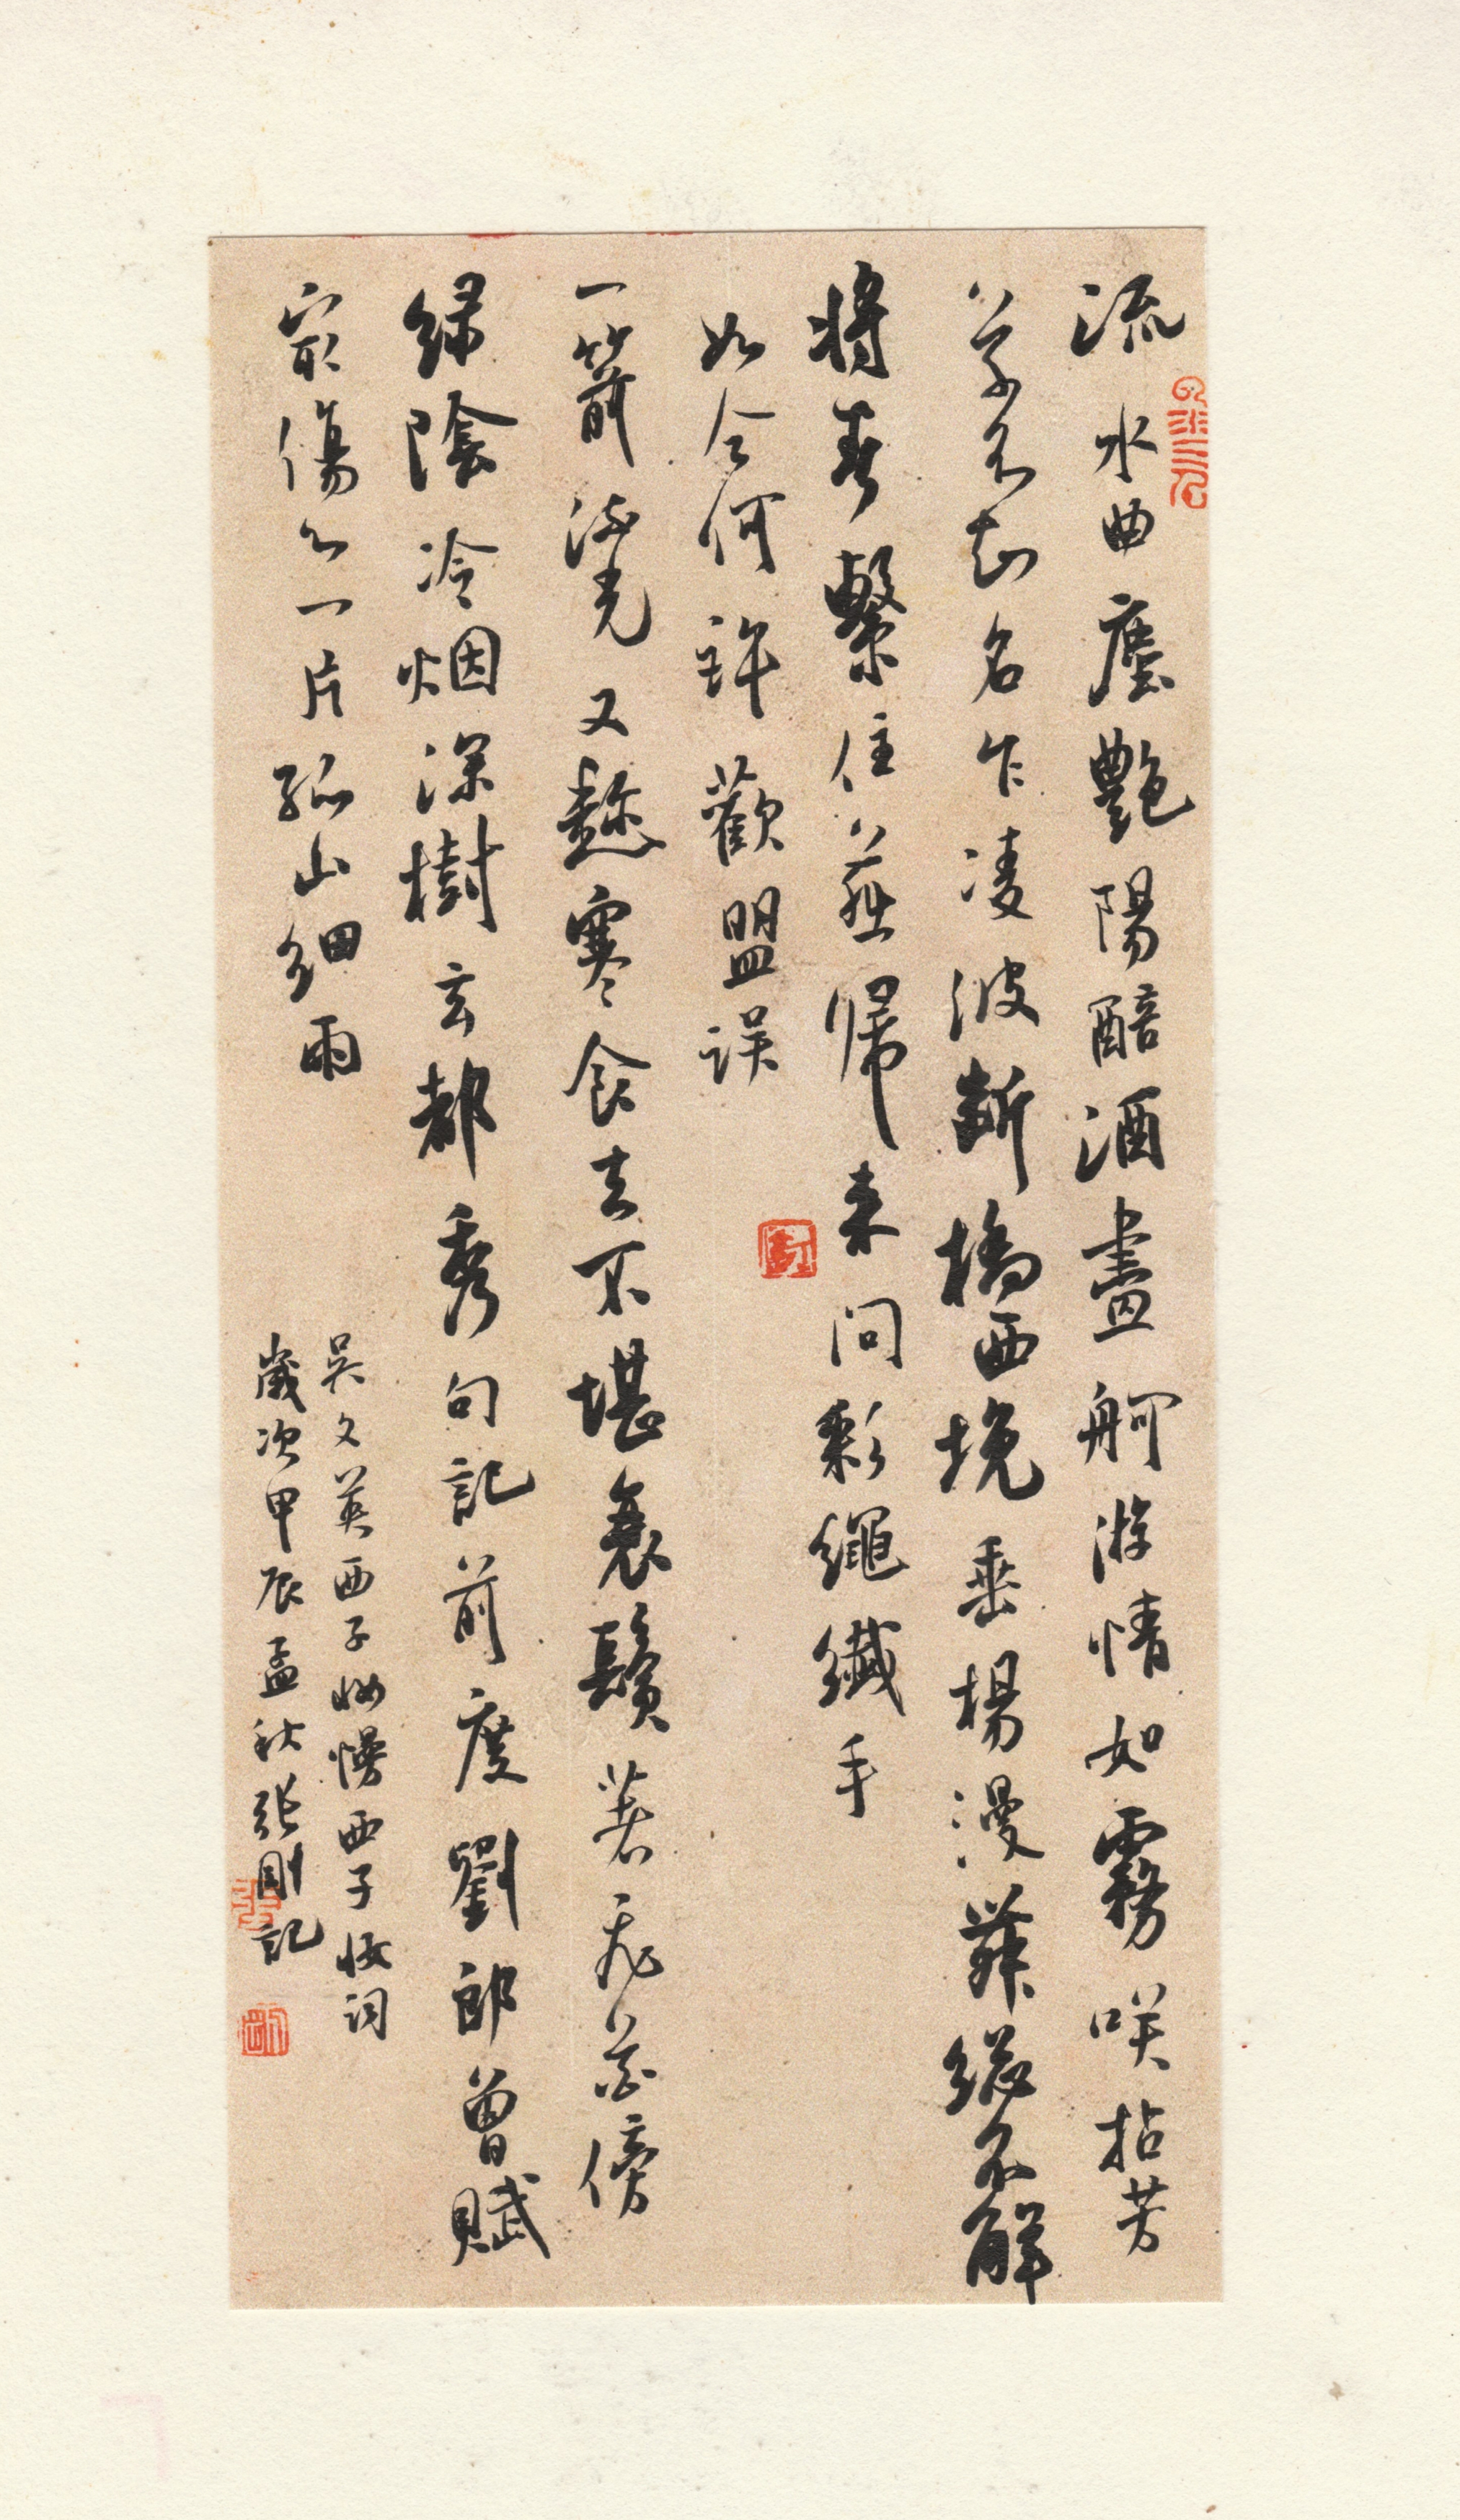 流水曲塵艷陽醅酒畫舸游情如霧咲拈芳
草不知名乍凌波斷橋西堍垂楊漫舞總不解
將春繫住燕歸來問彩繩纖手
如今何許歡盟誤
一箭流光又趁寒食去不堪衰鬢著飛花傍
綠陰冷烟深樹玄都秀句記前度劉郎曾賦
寂傷心一片孤山細雨
吳文英西子妝慢西子妝詞
歲次甲辰孟秋張剛記